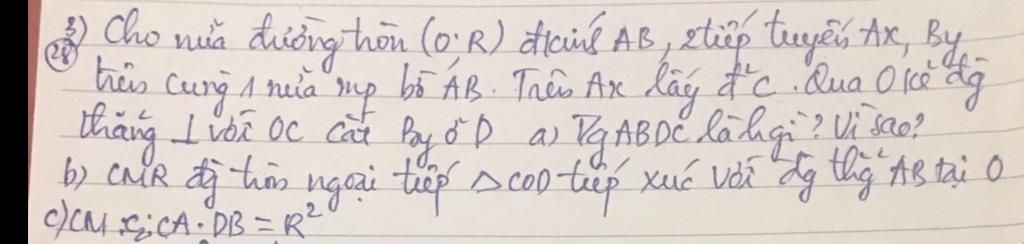 3) Cho nửa đường tròn (O;R) đkính AB, 2 tiếp tuyến Ax, By
(28) trên cùng 1 nửa mp bờ AB. Trên Ax lấy đ² C. Qua O kẻ đg
thẳng ⊥ với OC cắt By ở D a) Tg ABDC là h gì? Vì sao?
b) CMR đg tròn ngoại tiếp △COD tiếp xúc với đg thg² AB tại O
c) CM CA.DB = R²